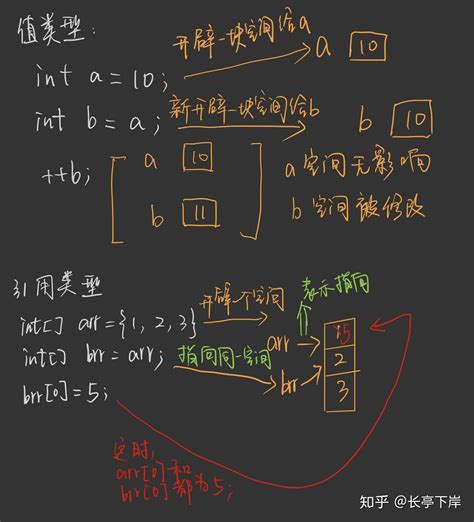 值类型:
开辟一块空间给a
int a = 10;
a 10
新开辟一块空间给b
int b = a;
b 10
++b;
a 10
b 11
a 空间无影响
b 空间被修改
引用类型
开辟一个空间
表示指向
int[] arr = {1, 2, 3}
arr
5
int[] brr = arr;
指向同一空间
2
brr
3
brr[0] = 5;
这时,
arr[0] 和
brr[0] 都为5;
知乎 @长亭下岸